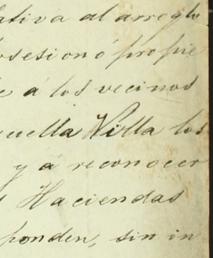 ativa al arreglo
osesion ó propie
e á los vecinos
quella Villa los
y á reconocer
s Haciendas
ponden, sin in